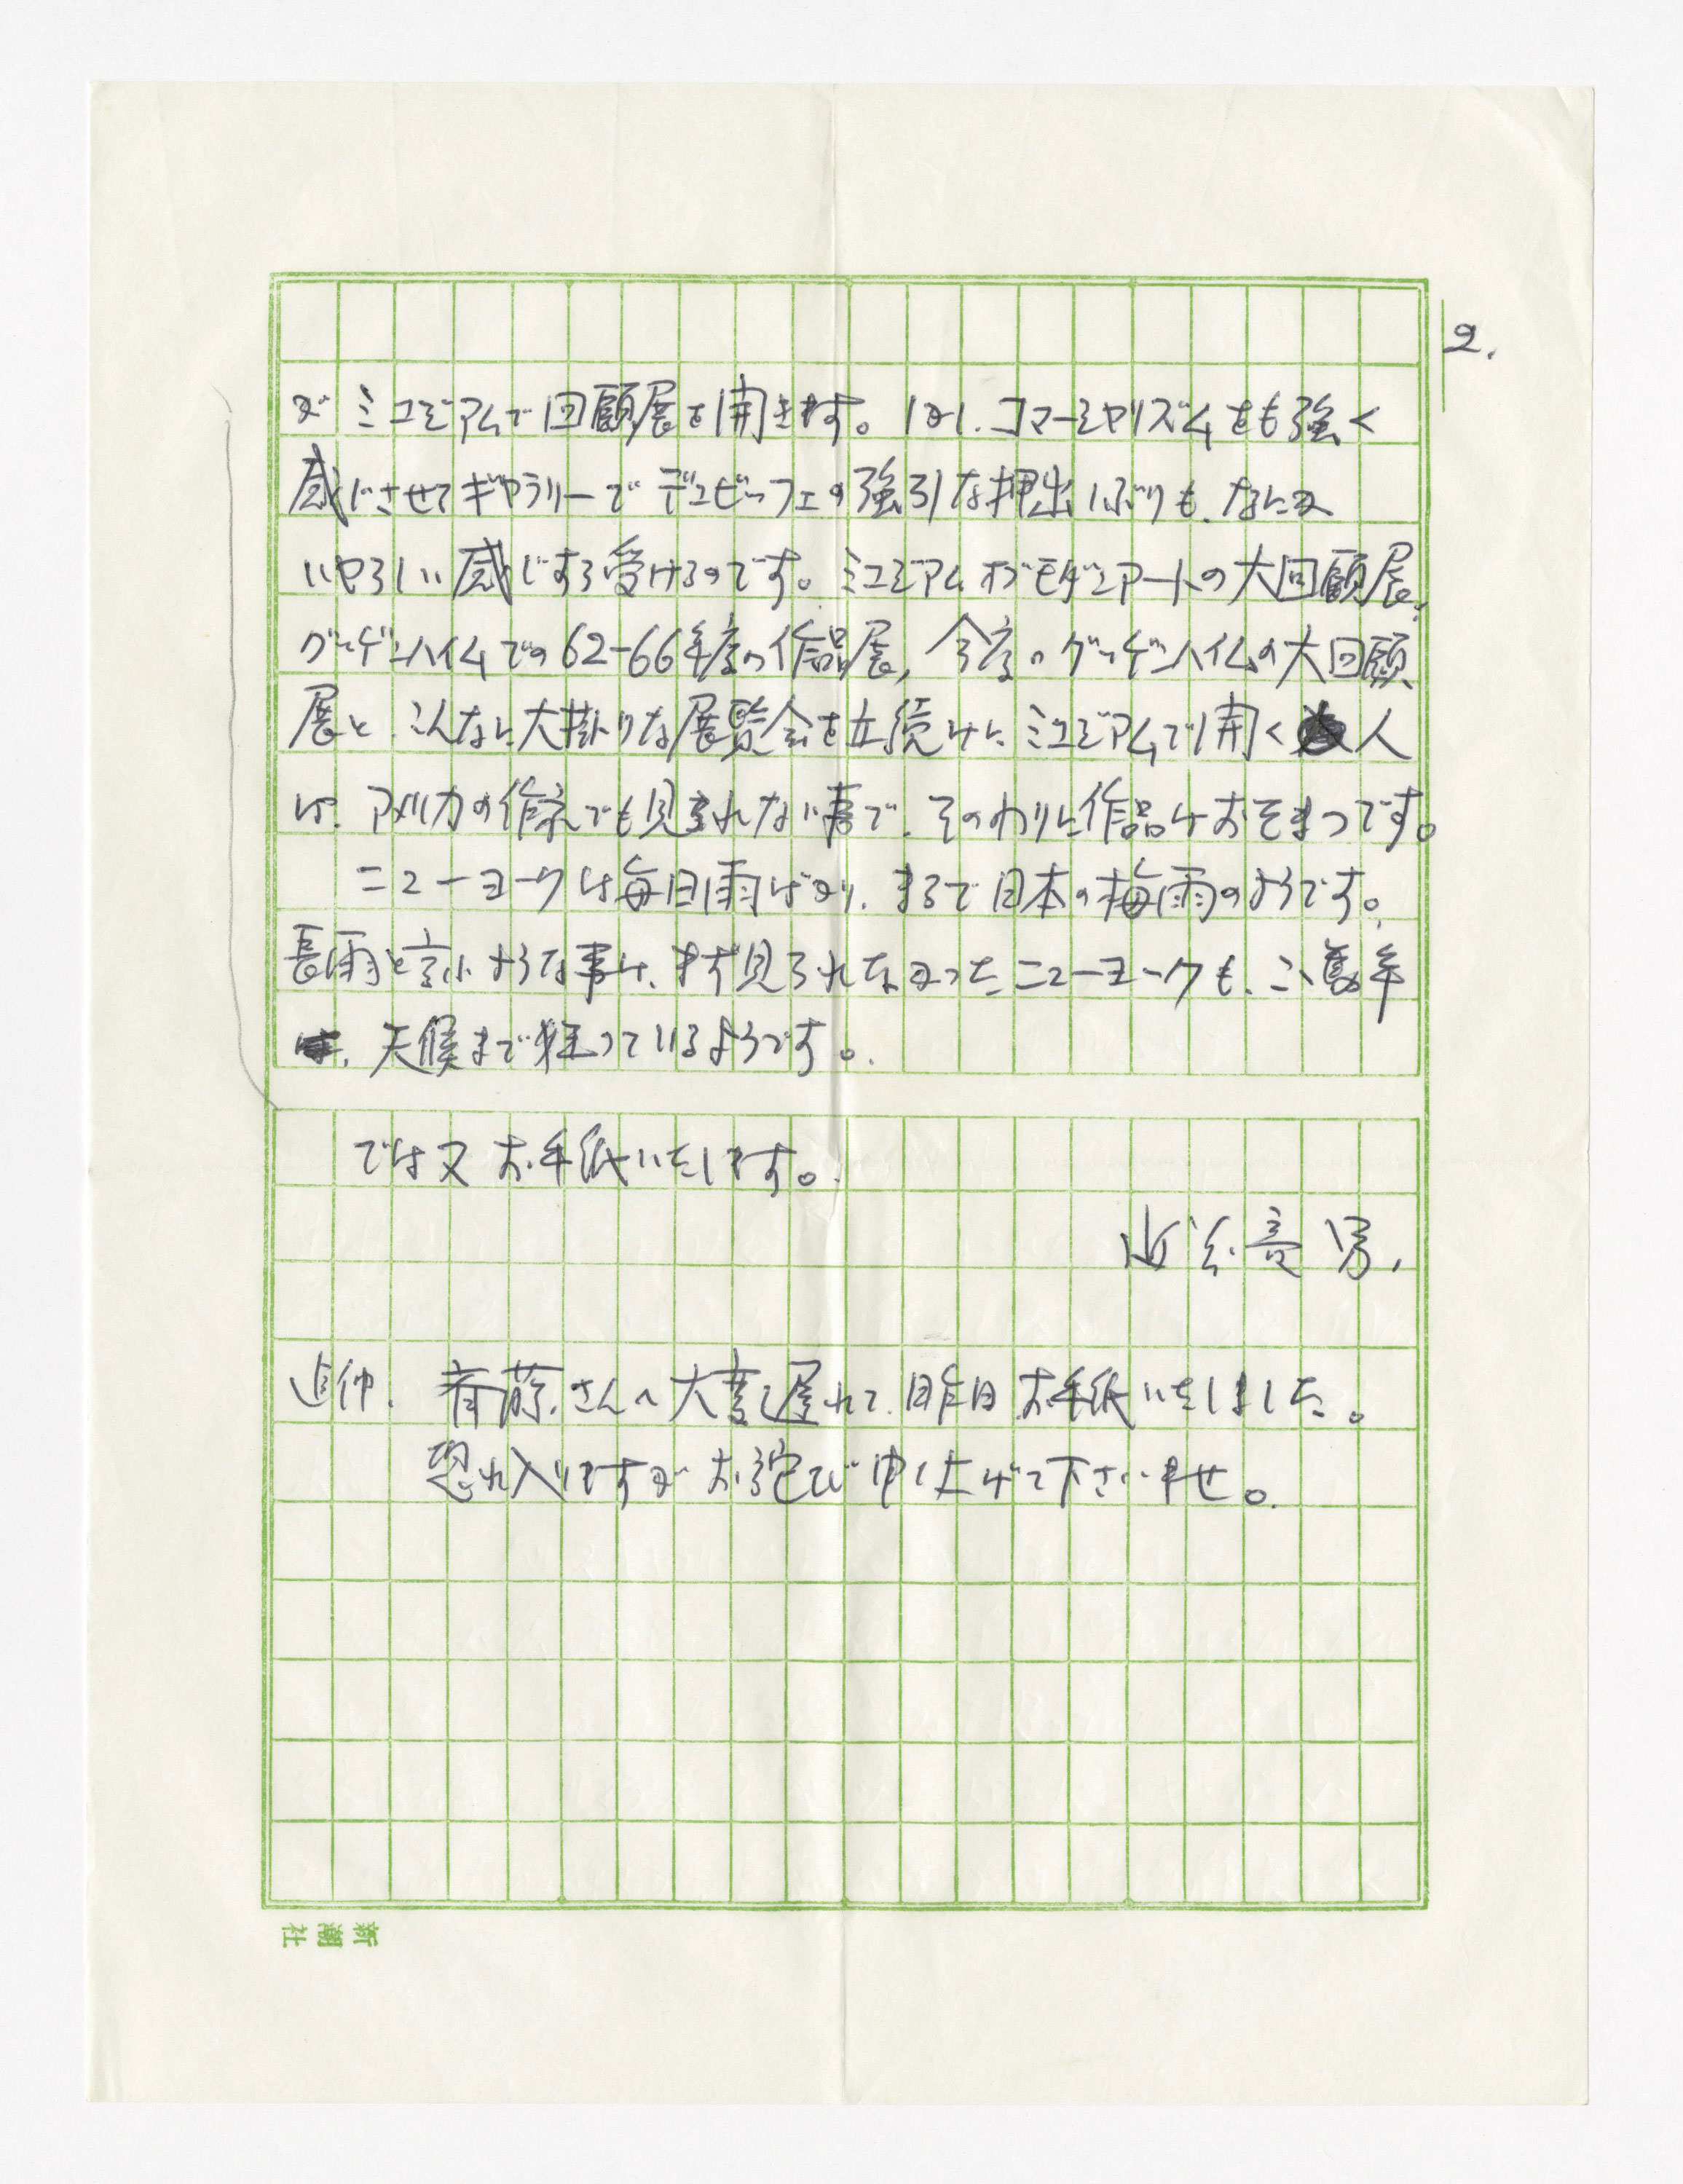 2.
がミュジアムで回顧展を開きます。しかし、コマーシャリズムをも強く
感じさせてギャラリーでデュビッフェの強引な押出しぶりも、なにか
いやらしい感じすら受けるのです。ミュジアムオブモダンアートの大回顧展、
グッゲンハイムでの62-66年度の作品展、今度のグッゲンハイムの大回顧
展と、こんなに大掛りな展覧会を立続けにミュジアムで開く人
は、アメリカの作家でも見られない事で、そのわりに作品はおそまつです。
ニューヨークは毎日雨ばかり、まるで日本の梅雨のようです。
長雨と言ふような事は、まず見られなかったニューヨークも、こゝ数年
は、天候まで狂っているようです。
では又お手紙いたします。
近藤竜男、
追伸、斉藤さんへ大変遅れて、昨日お手紙いたしました。
恐れ入りますがお詫び申し上げて下さいませ。
新潮社